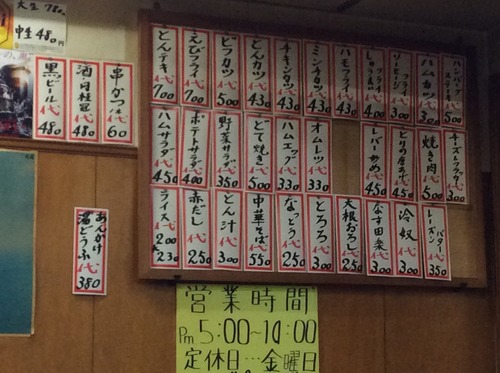 大生 780
中生 480
黒ビール 代 480
酒・月桂冠 代 480
串かつ 代 60
あんかけ
湯どうふ 代 380
とんテキ 代 700
えびフライ 代 700
ビフカツ 代 500
とんカツ 代 430
チキンカツ 代 430
ミンチカツ 代 430
ハモフライ 代 430
ハムカツ 代
ハンバーグ
ステーキ 代 500
ハムサラダ 代 450
ポテトサラダ 代 400
野菜サラダ 代 350
とて焼き 代 500
ハムエッグ 代 330
オムレツ 代 330
レバー炒め 代 450
とりの唐あげ 代 450
焼き肉 代 500
チーズクラッカー 代 300
ライス 代 200 230
赤だし 代 250
とん汁 代 300
中華そば 代 550
なっとう 代 250
とろろ 代 300
大根おろし 代 250
なす田楽 代 300
冷奴 代 300
レーズンバター 代 350
営業時間
Pm 5:00~10:00
定休日…金曜日